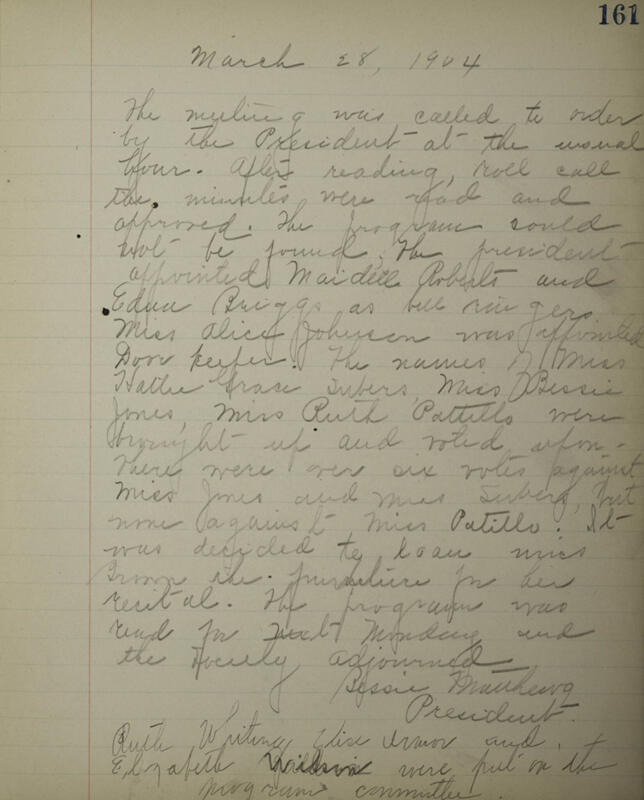 161
March 28, 1904
The meeting was called to order
by the President at the usual
hour. After reading, roll call
the minutes were read and
approved. The program could
not be found. The president
appointed Maidell Roberts and
Edna Briggs as bell ringers.
Miss Alice Johnson was appointed
Door keeper. The names of Miss
Hattie Grace Tubers, Miss Bessie
Jones, Miss Ruth Pattillo were
brought up and voted upon.
There were over six votes against
Miss Jones and Miss Tubers, but
none against Miss Patillo. It
was decided to loan Miss
the furniture for her
recital. The program was
read for next Monday and
the Society adjourned
Bessie Matthews
President.
Ruth Whiting, Elise Armor and
Elizabeth Wilson were put on the
program committee.